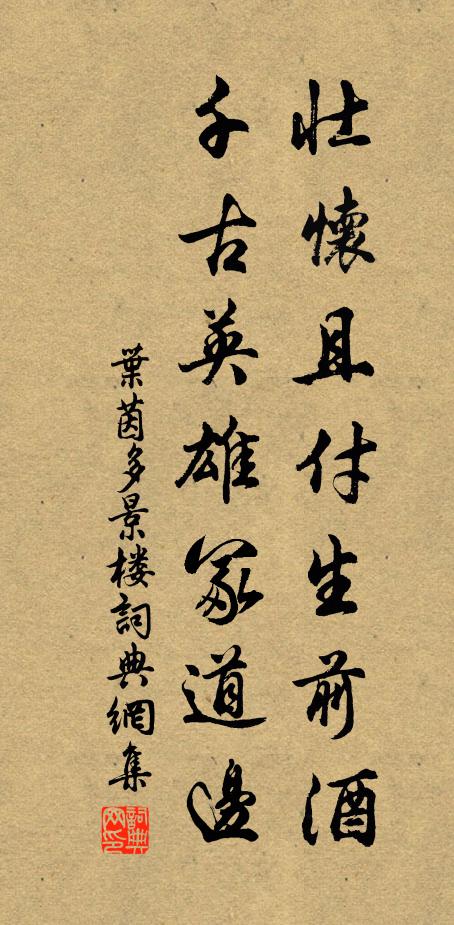 壮懷且付生前酒
千古英雄冢道邊
葉茵多景楼詞典網集
詞典網印